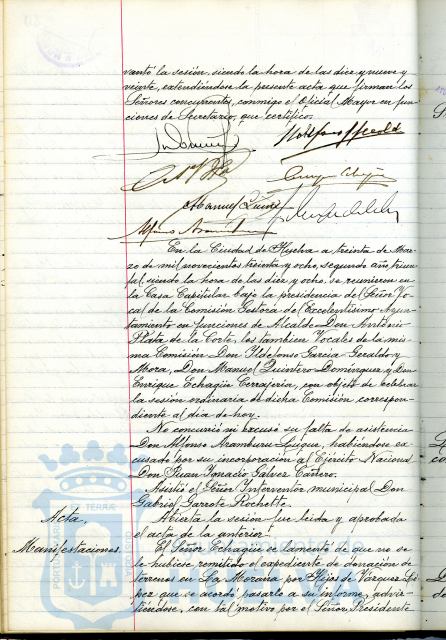 vantó la sesión, siendo la hora de las diez y nueve y
veinte, extendiéndose la presente acta que firman los
Señores concurrentes, conmigo el Oficial Mayor en fun-
ciones de Secretario, que certifico.
En la Ciudad de Huelva a treinta de Mar-
zo de mil novecientos treinta y ocho, segundo año triun-
fal, siendo la hora de las diez y ocho, se reunieron en
la Casa Capitular bajo la presidencia del Señor Vo-
cal de la Comisión Gestora del Excelentísimo Ayun-
tamiento en funciones de Alcalde Don Antonio
Plata de la Corte, los tambien Vocales de la mis-
ma Comisión Don Ildefonso García Geraldo y
Mora, Don Manuel Quintero Domínguez, y Don
Enrique Echagüe Cerrajería, con objeto de celebrar
la sesión ordinaria de dicha Comisión correspon-
diente al día de hoy.
No concurrió ni excusó su falta de asistencia
Don Alfonso Aramburu Luque, habiéndose ex-
cusado por su incorporación al Ejército Nacional
Don Juan Ignacio Gálvez Cañero.
Asistió el Señor Interventor municipal Don
Gabriel Garrote Rochette.
Acta. Abierta la sesión fue leída y aprobada
el acta de la anterior.
Manifestaciones. El Señor Echagüe se lamentó de que no se
le hubiese remitido el expediente de donación de
terrenos en La Morana por Hijos de Vázquez Ló-
pez que se acordó pasarle a su informe, advir-
tiéndose, con tal motivo por el Señor Presidente